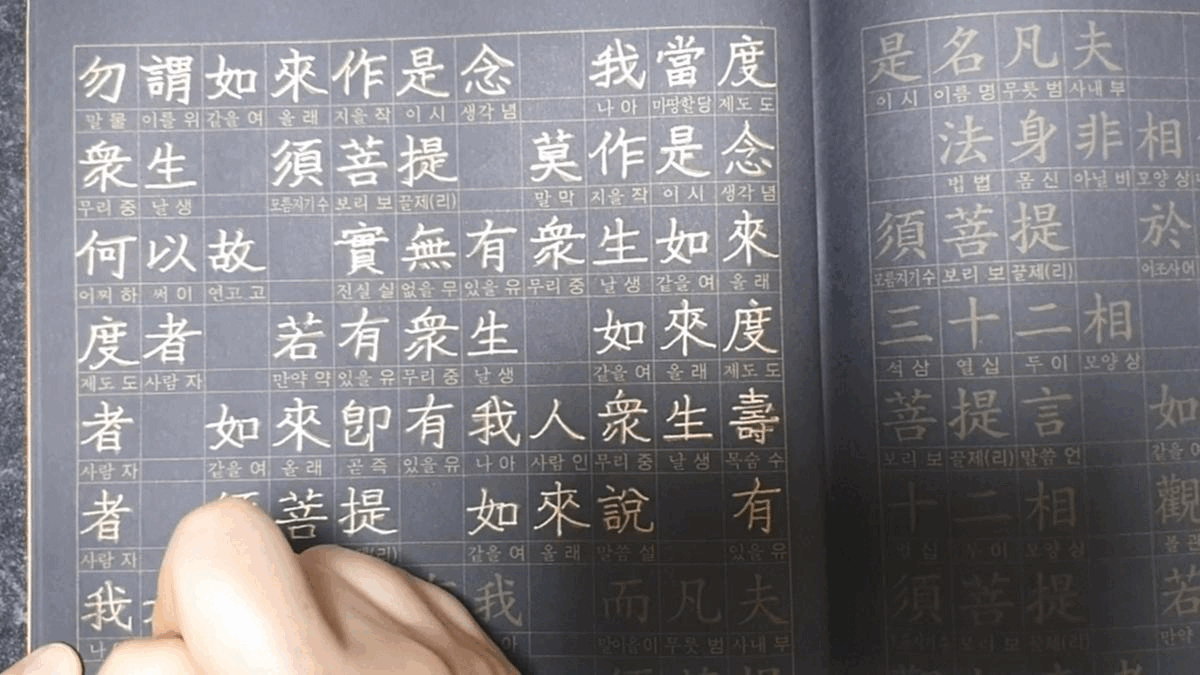 勿謂如來作是念 我當度
말 물 이를 위 같을 여 올 래 지을 작 이 시 생각 념 나 아 마땅할당 제도 도
衆生 須菩提 莫作是念
무리 중 날 생 모름지기수 보리 보 끌제(리) 말 막 지을 작 이 시 생각 념
何以故 實無有衆生如來
어찌 하 써 이 연고 고 진실 실 없을 무 있을 유 무리 중 날 생 같을 여 올 래
度者 若有衆生 如來度
제도 도 사람 자 만약 약 있을 유 무리 중 날 생 같을 여 올 래 제도 도
者 如來卽有我人衆生壽
사람 자 같을 여 올 래 곧 즉 있을 유 나 아 사람 인 무리 중 날 생 목숨 수
者 菩提 如來說 有
사람 자 같을 여 올 래 말씀 설 있을 유
我 我 而凡夫
말이을이 무릇 범 사내 부
是名凡夫
이 시 이름 명 무릇 범 사내 부
法身非相
법 법 몸 신 아닐 비 모양 상
須菩提 於
모름지기수 보리 보 끌제(리) 어조사 어
三十二相
석 삼 열 십 두 이 모양 상
菩提言 如
보리 보 끌제(리) 말씀 언 같을 여
十二相 觀
열 십 두 이 모양 상 볼 관
須菩提 若
모름지기수 보리 보 끌제(리) 만약